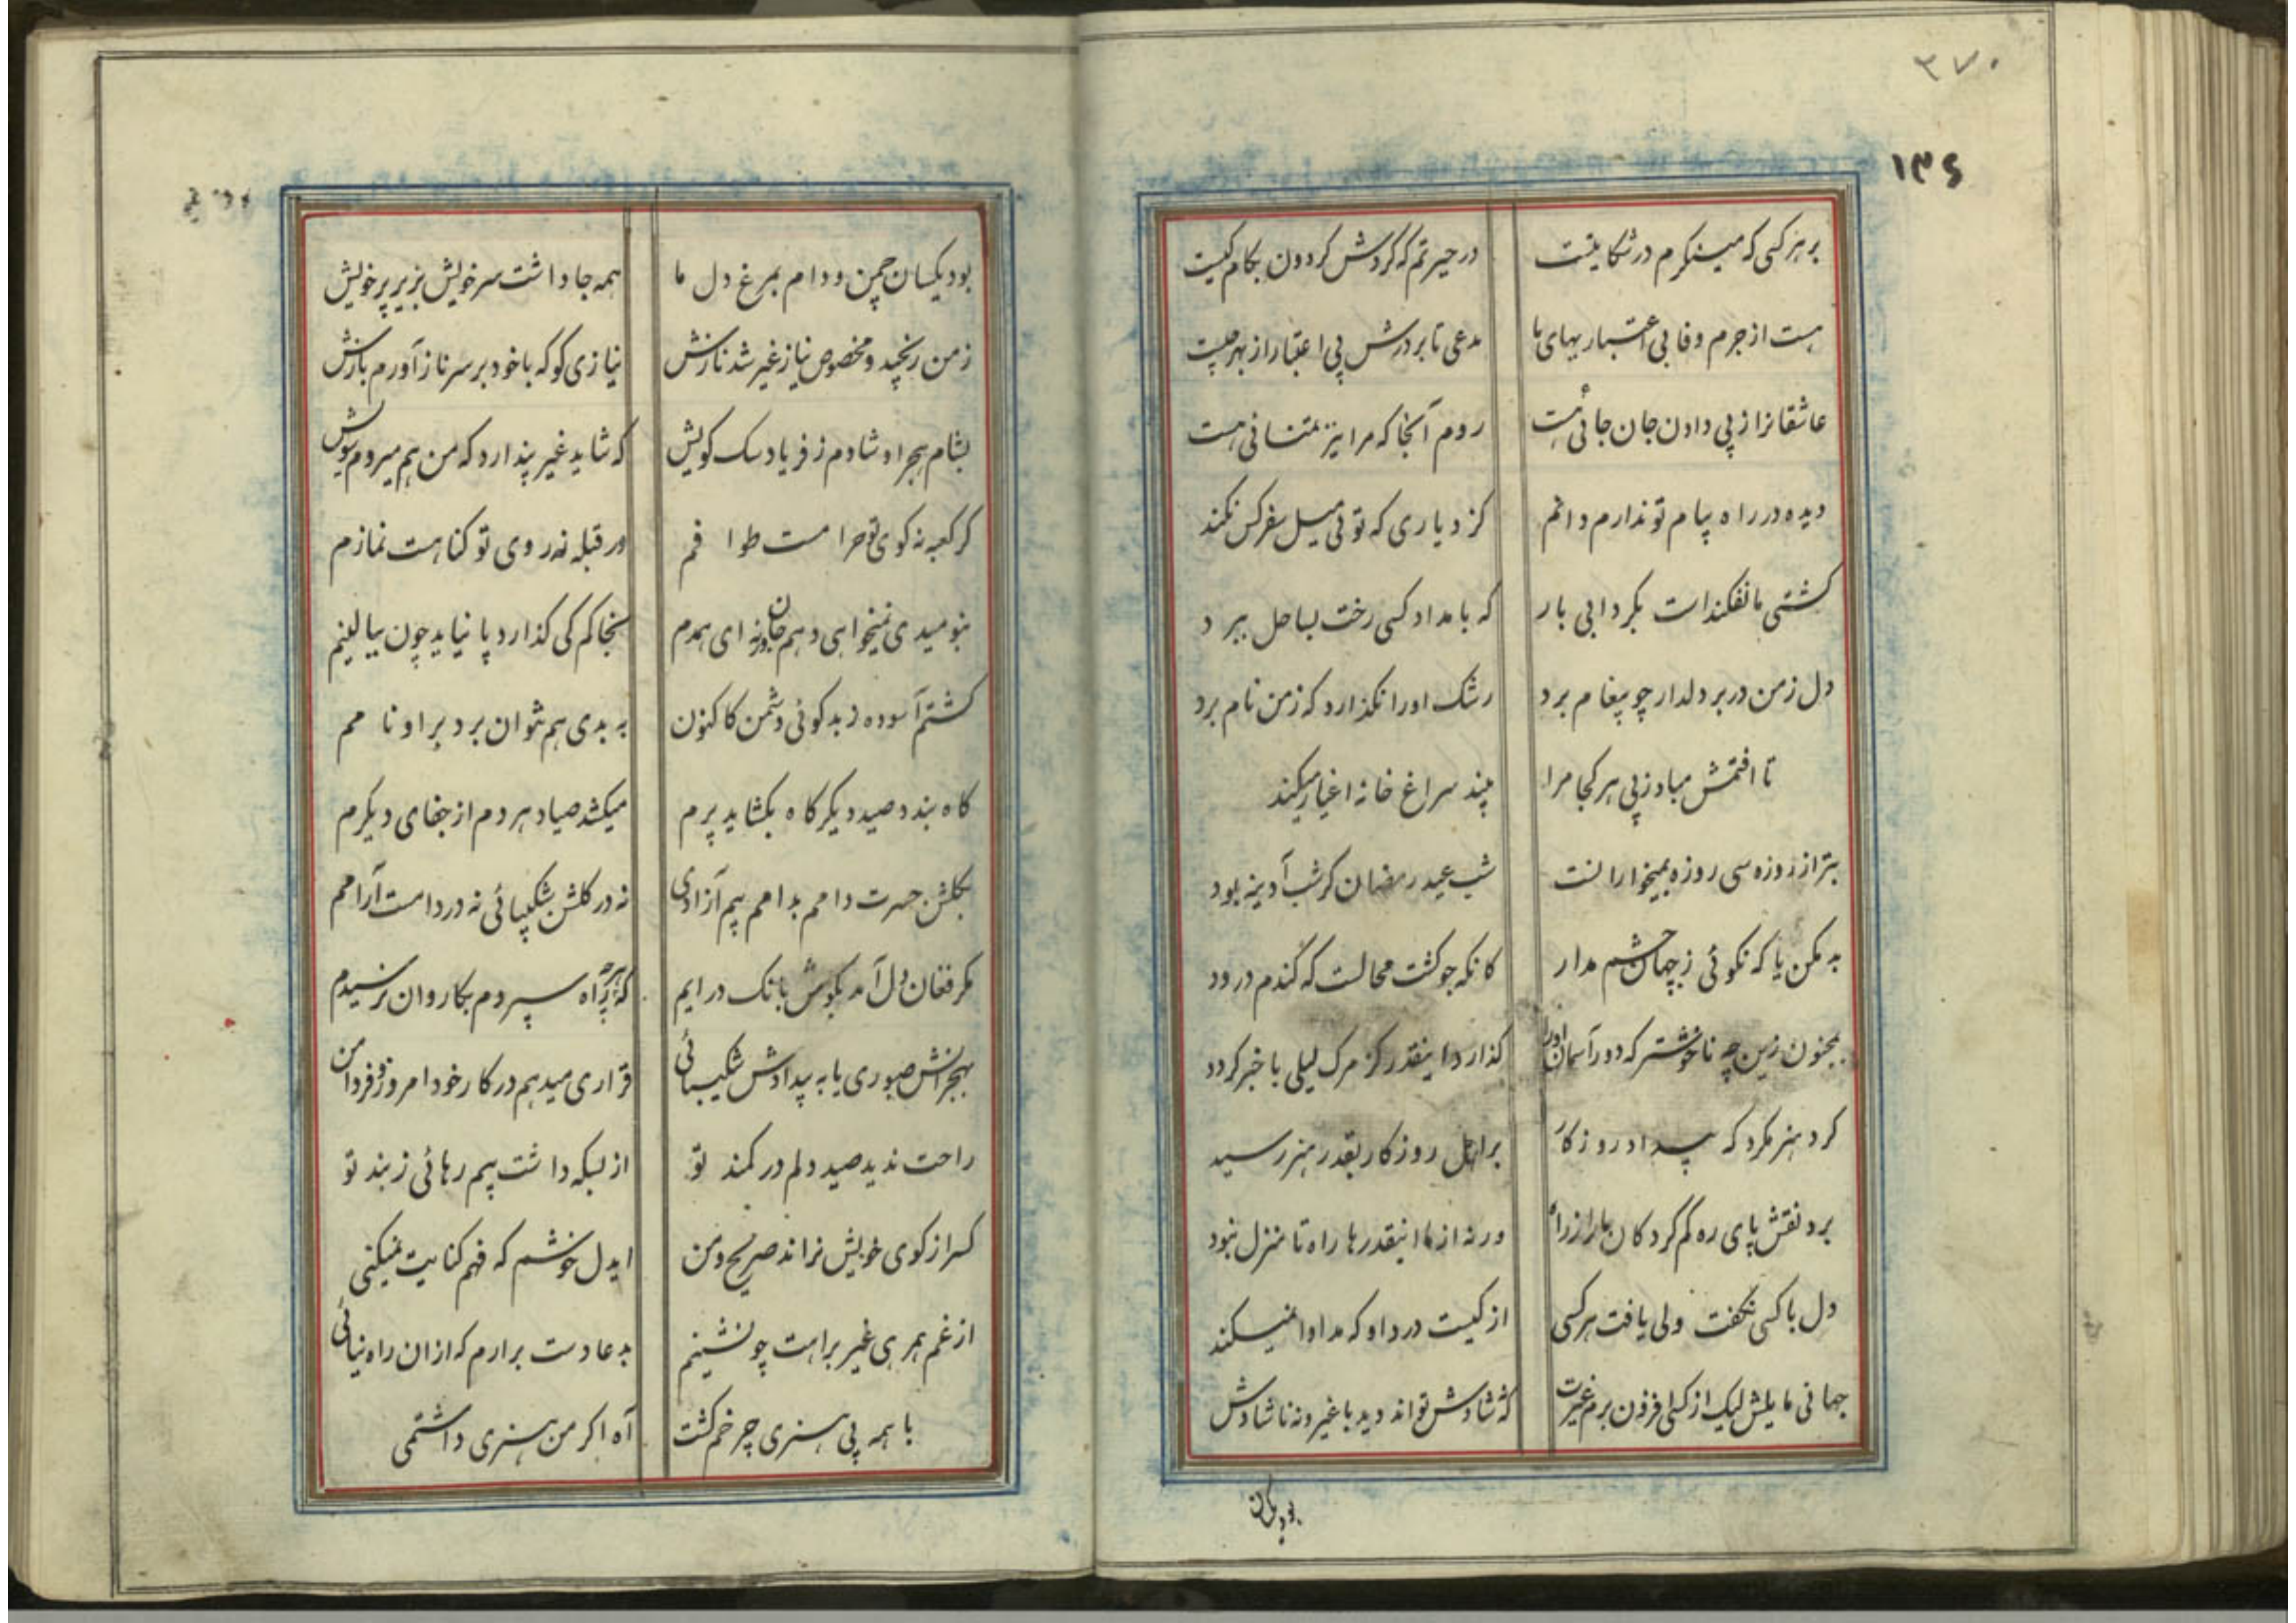 ۳۷۰
۱۳۶
بر هر کسی که مینکرم در شکایتست در حیرتم که کردش کردون بکام کیست
هست از جرم وفا بی اعتباریهای ما مدعی تا بر درش بی اعتبار از بهر چیست
عاشقانرا از پی دادن جان جائی هست روم آنجا که مرا نیز تمنائی هست
دیده در راه پیام تو ندارم دانم کز دیاری که توئی میل سفر کس نکند
کشتی ما نفکندست بکردابی بار که بامداد کسی رخت بساحل ببرد
دل ز من در بر دلدار چو پیغام برد رشک او را نکذارد که ز من نام برد
تا افتمش مباد ز پی هر کجا مرا بیند سراغ خانه اغیار میکند
بتر از روزه سی روزه بمیخوارانست شب عید رمضان کر شب آدینه بود
بد مکن یا که نکوئی ز جهان چشم مدار کانکه جو کشت محالست که گندم درود
بمجنون زین چه ناخوشتر که دور آسمان او را گذارد اینقدر کز مرک لیلی با خبر کردد
کرد هنر مکرد که بیداد روزکار بر اهل روزکار بقدر هنر رسید
برد نقش پای ره کم کردکان ما را ز راه ورنه از ما اینقدرها راه تا منزل نبود
دل با کسی نکفت ولی یافت هر کسی از کیست درد او که مداوا نمیکند
جهانی مایلش لیک از کسی فزون برم غیرت که شادش تواند دید با غیر و نه ناشادش
بود یکسان
بود یکسان چمن و دام بمرغ دل ما همه جا داشت سر خویش بزیر پر خویش
ز من رنجید و مخصوص نیاز غیر شد نازش نیازی کو که با خود بر سر ناز آورم بازش
بشام هجر او شادم ز فریاد سک کویش که شاید غیر پندارد که من هم میروم سویش
کر کعبه نه کوی تو حرامست طوافم ور قبله نه روی تو کناهست نمازم
بنومیدی نمیخواهی دهم جان ورنه ای همدم نجاکم کی کذارد پا نیاید چون ببالینم
کشتم آسوده ز بدکوئی دشمن کاکنون به بدی هم نتوان برد بر او نامم
کاه بندد صید دیکر کاه بکشاید پرم میکشد صیاد هر دم از جفای دیکرم
بکلشن حسرت دامم بدامم بیم آزادی نه در کلشن شکیبائی نه در دامست آرامم
مکر فغان دل آمد بکوش بانک درایم که هر چه راه سپردم بکاروان نرسیدم
بهجرانش صبوری یا به بیدادش شکیبائی قراری میدهم در کار خود امروز و فردا من
راحت ندید صید دلم در کمند تو از بسکه داشت بیم رهائی ز بند تو
کسر از کوی خویش نراند صریح و من ایدل خوشم که فهم کنایت نمیکنی
از غم همرهی غیر براهت چو نشینم بدعا دست برارم که ازان راه نیائی
با همه بی هنری چرخم کشت آه اکر من هنری داشتمی